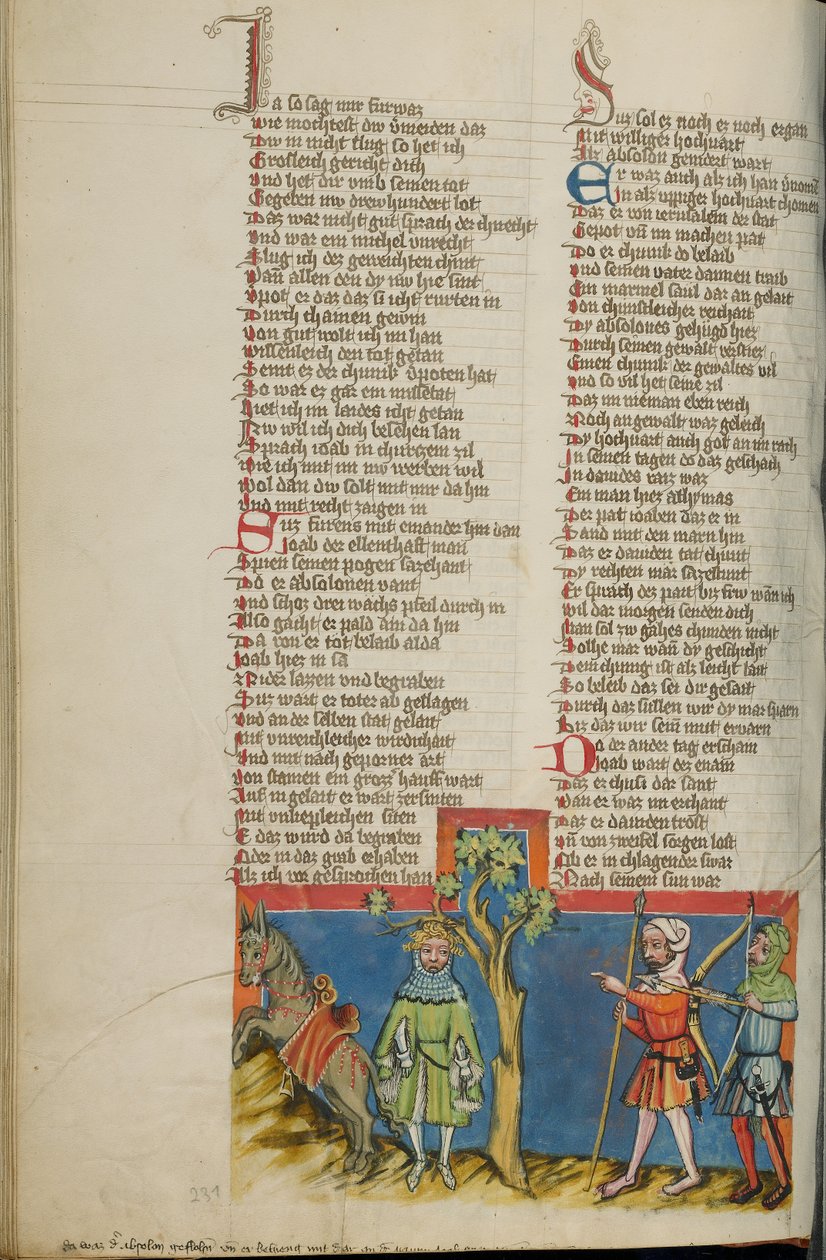 Ja so sag mir furwaz
wie mochtest dw vmeiden daz
Dw in nicht slug so het ich
Grosleich gericht dich
vnd het dir vmb seinen tot
Gegeben nw drew hundert lot
Daz war nicht gut sprach der chnecht
vnd war ein michel vnrecht
Slug ich dez geweichten chint
Wan allen den dy nw hie sint
vpot er daz daz si icht rurten in
Durch chainen gewin
von gut wolt ich im han
willenleich den tot getan
Seint ez der chunik vpoten hat
So war ez gar ein missetat
Hiet ich im laides icht getan
Nw wil ich dich besehen lan
Sprach ioab in churczem zil
wie ich mit im nw werben wil
wol dan dw solt mit mir da hin
vnd mit recht zaigen in
Suz furens mit einander hin dan
Joab der ellenthaft man
Spien seinen pogen sazehant
Do er absolonen vant
vnd schoz drei wachs pfeil durch in
Also gacht er pald ain da hin
Da von er tot belaib alda
Joab hiez in sa
Nider lazzen vnd begraben
Suz wart er toter ab geslagen
vnd an der selben stat gelait
Mit vnreichleicher wirdichait
vnd mit nach geporner art
von stainen ein grozz hauff wart
Auf in gelait er wart zersniten
Mit vnliepleichen siten
E daz wurd da begraben
Oder in daz grab erhaben
Als ich vor gesprochen han
Suz sol ez noch er noch ergan
Mit williger hochuart
Als absolon gemdert wart
Er waz auch als ich han vnome
In alz vppiger hochuart chomen
Daz er von ierusalem der stat
Gepot vn im machen pat
Do er chunik do belaib
vnd seinen vater dannen traib
Ein marmel saul dar an gelait
von chunstleicher reichait
Dy absolones gehugd hiez
Durch seinen gewalt verstiez
Einen chunik der gewaltes vil
vnd so vil het seine zil
Daz im nieman eben reich
Noch an gewalt waz geleich
Dy hochuart auch got an im rach
In seinen tagen do daz geschach
In dauides rarz waz
Ein man hiez athymas
Der pat ioaben daz er in
Sand mit den marn hin
Daz er dauiden tat chunt
Dy rechten mar sazestunt
Er sprach dez pait biz frw wan ich
wil dar morgen senden dich
Man sol zw gahes chunden nicht
Solhe mar wan dy geschicht
Dem chunig ist als leicht lait
So beleib daz sei dir gesait
Durch daz sullen wir dy mar sparn
Biz daz wir sein mut ervarn
Do der ander tag erschain
Joab wart dez enain
Daz er chusi dar sant
Wan er waz im erchant
Daz er dauiden trost
vn von zweifel sorgen lost
Ob er in chlagender swar
Nach seinem sun war
231
da waz d absolon geflohn vn er behieng mit d har an